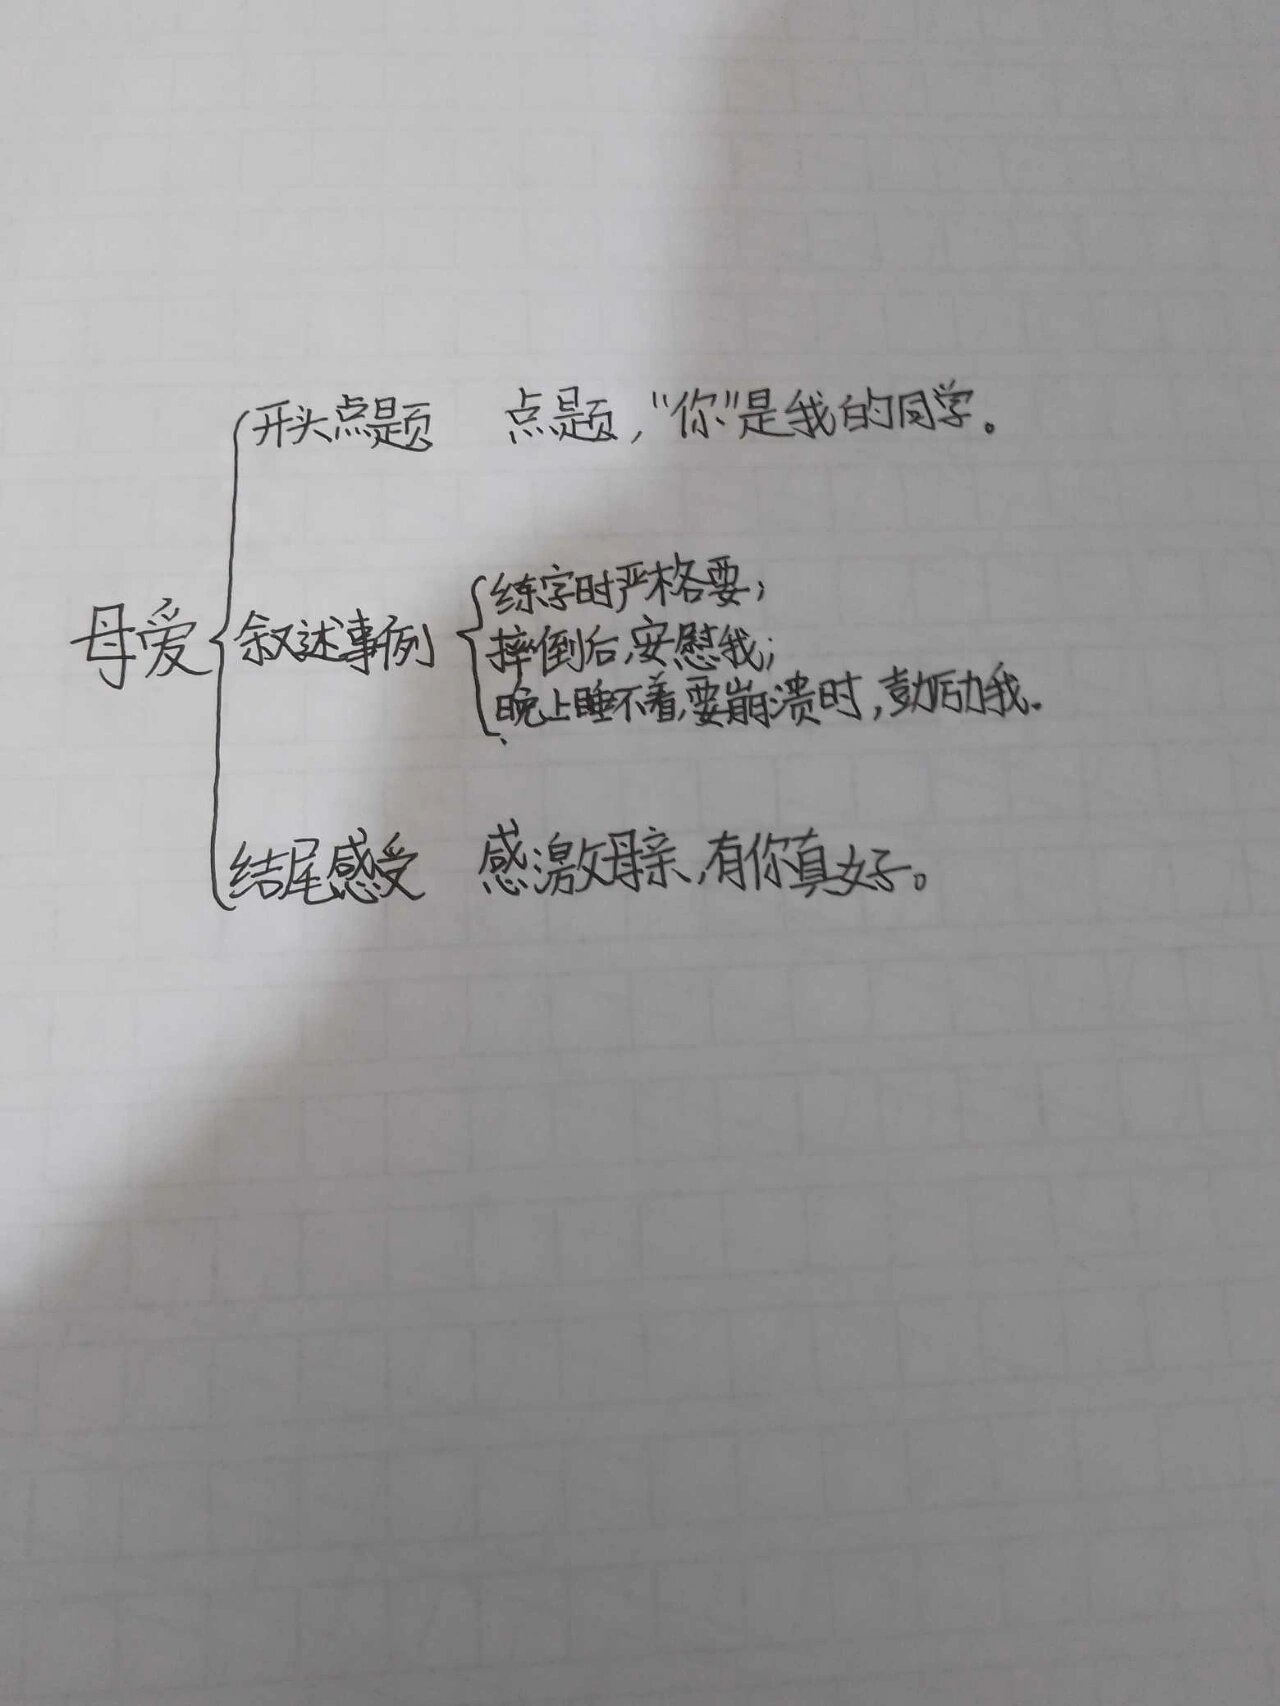 开头点题 点题，“你”是我的同学。
母爱
叙述事例
练字时严格要；
摔倒后，安慰我；
晚上睡不着，要崩溃时，鼓励我.
结尾感受 感激母亲，有你真好。